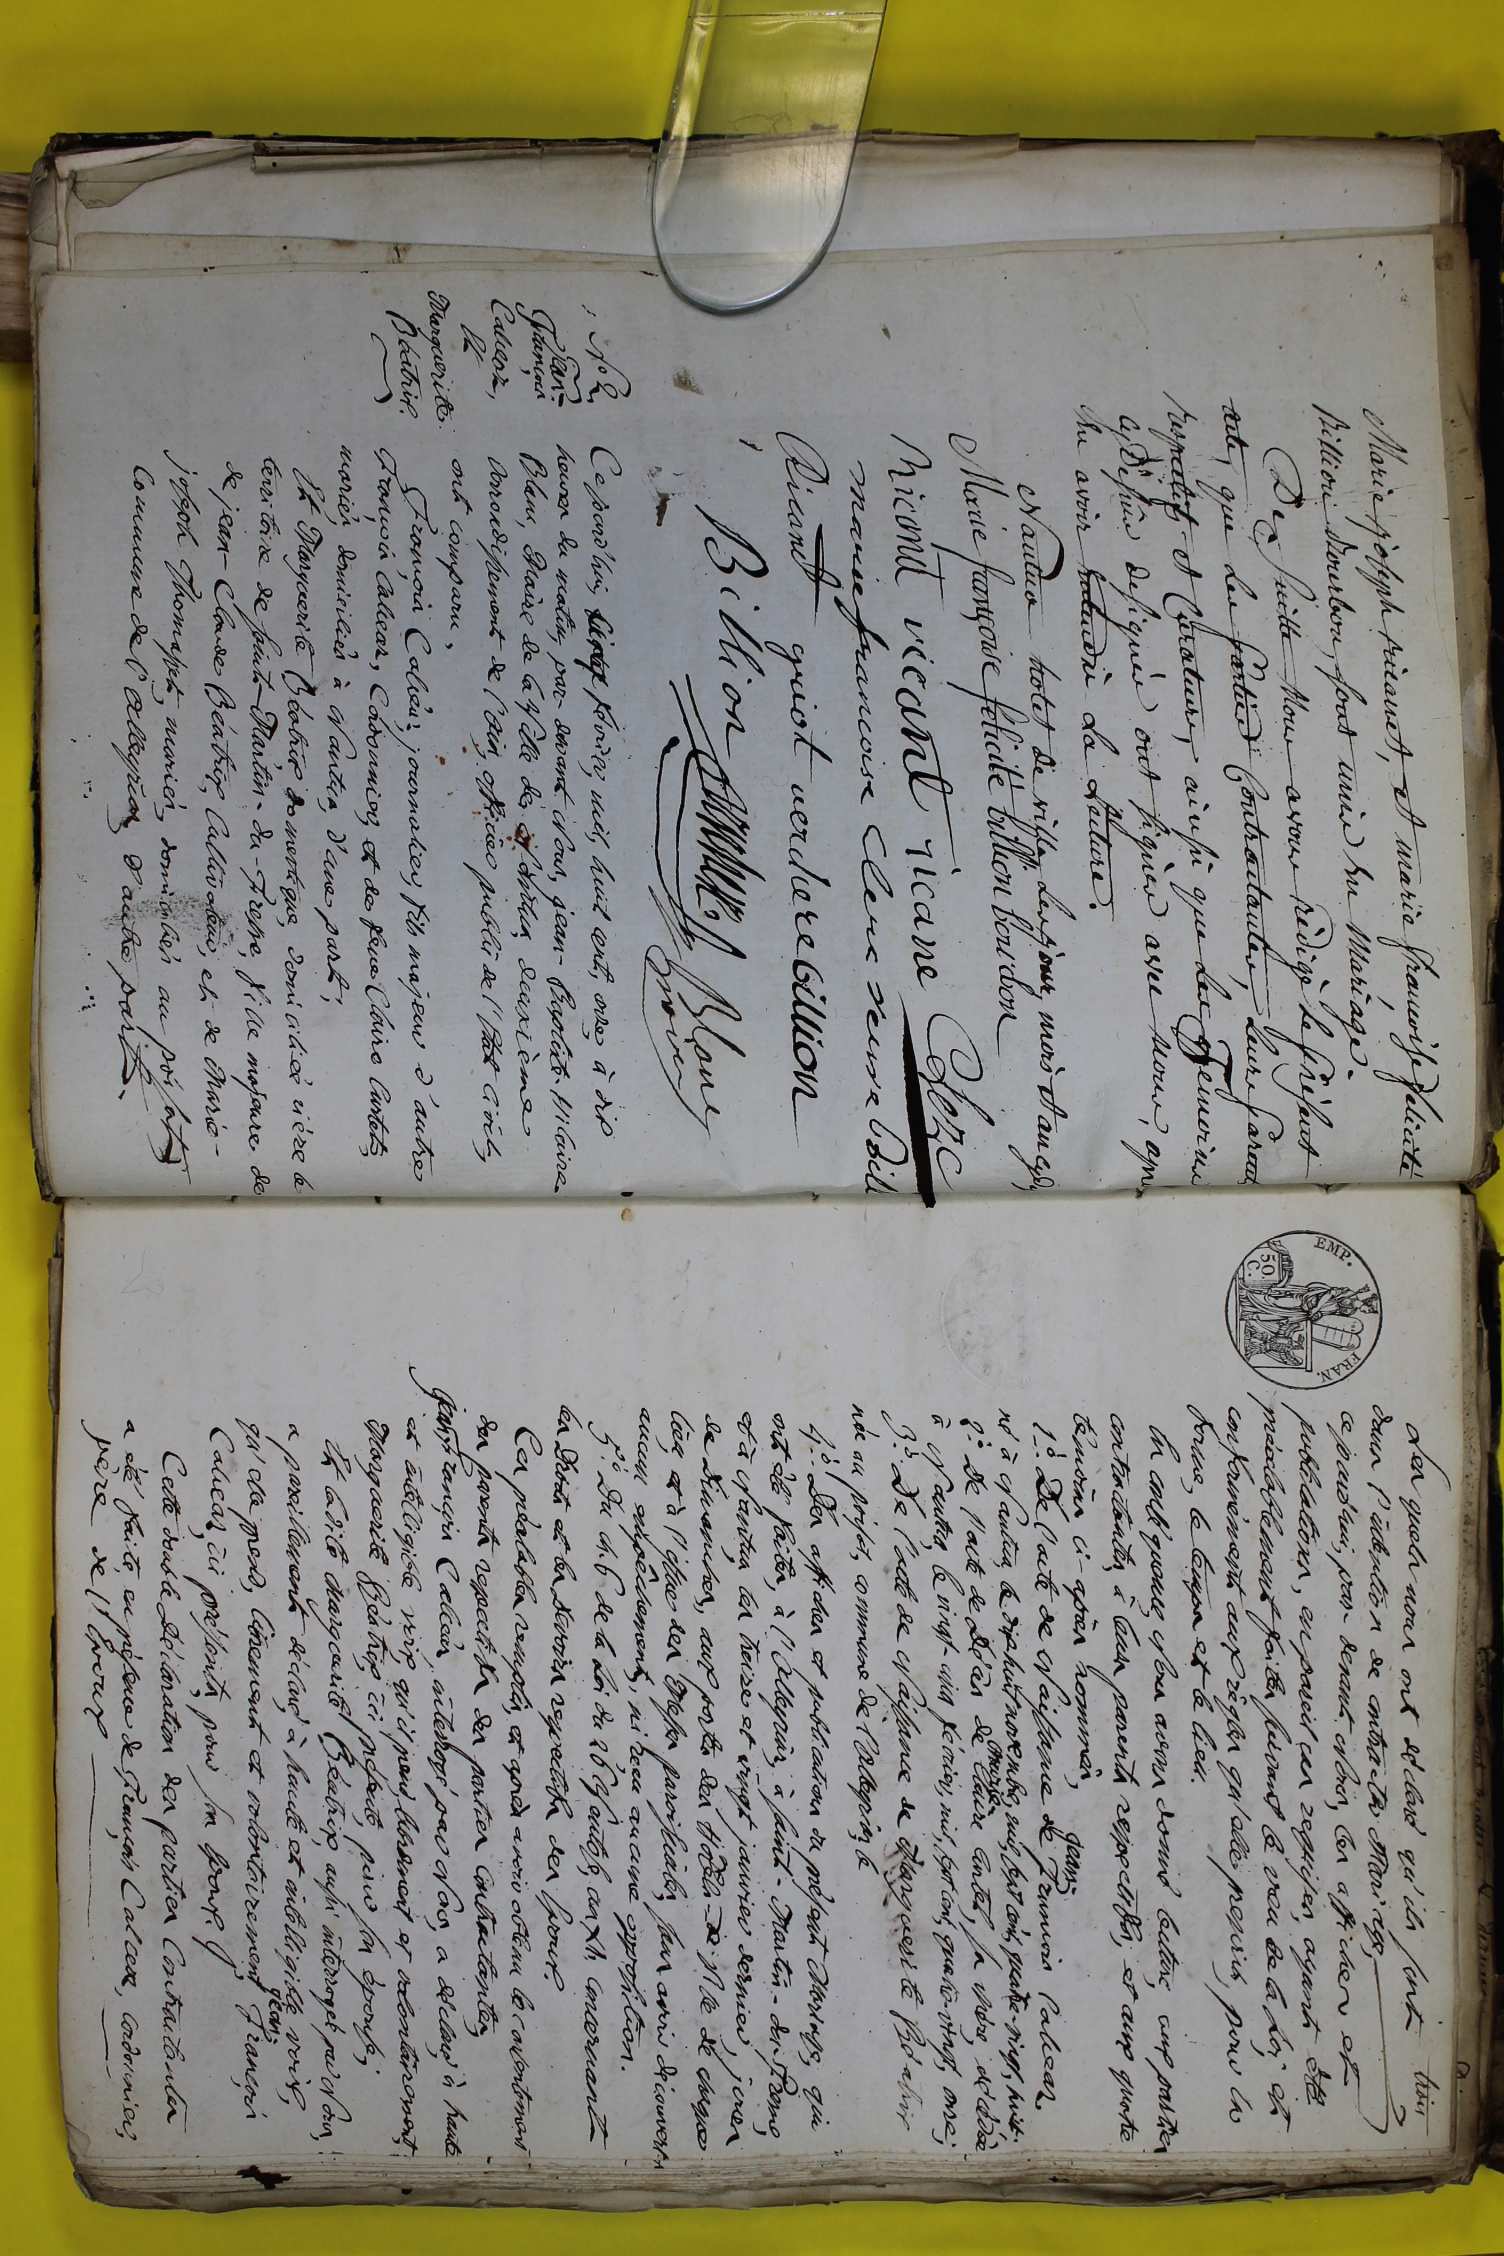 Marie joseph ricanet, et marie françoise félicité
Billion Bourbon, sont unis en Mariage.
De Suite Nous avons rédigé le présent
acte, que les parties Contractantes, leurs parens
respectifs et Curateurs, ainsi que les Témoins
cy Dessus désignés ont signés avec Nous, apr
en avoir entendu la lecture.
Nantua hotel de ville les jour, mois et an cy d
Marie françoise félicité billion bouidon
ricant vicant ricane Clerc
marie francoise Clerc veuve bill
Ricanet guiot verdere billion
Billion Blanc
Nº 2.
Jean-
François
Calicar,
et
Marguerite
Béatrix.
Cejourd'hui février, mil, huit cent, onze à dix
heures du matin, par-devant Nous, jean-Baptiste-Hilaire
Blanc, Maire de la Ville de Nantua, deuxième
arrondissement de l'Ain, officier public de l'État civil,
ont comparu,
François Calicar, journalier, fils majeur d'autre
François Calicar, Cordonnier, et de feue Claire Curtet,
mariés, domiciliés à Nantua, d'une part;
Et Marguerite Béatrix domestique, domiciliée rière le
territoire de Saint-Martin-du-Fresne, fille majeure de
de jean-Claude Béatrix, Cultivateur, et de Marie-
joseph Thomasset, mariés, domiciliés au poisat,
Commune de l'Alleyriat, d'autre part.
EMP. FRAN.
50 C.
trois
Les quels nous ont déclaré qu'ils sont
dans l'intention de contracter Mariage,
cejourd'hui, par-devant Nous, les affiches et
publications, en pareil cas requises, ayant été
préalablement faites suivant le vœu de la Loi et
conformément aux règles qu'elle prescrit, pour la
forme, le temps et le lieu.
En conséquence, Nous avons donné lecture, aux parties
contractantes, à leurs parents respectifs, et aux quatre
témoins ci-après nommés,
1.º De l'acte de Naissance de jean-François Calicar
né à Nantua, le dix huit novembre, mil, sept cent, quatre-vingt, huit.
2.º De l'acte de Décès de Marie Claire Curtet, sa mère, décédée
à Nantua, le vingt-cinq février, mil, sept cent, quatre-vingt, onze;
3.º De l'acte de Naissance de Marguerite Béatrix
née au poisat, commune de l'Alleyriat, le
4.º Des affiches et publications du présent Mariage, qui
ont été faites, à l'Alleyriat, à Saint-Martin-du-Fresne,
et à Nantua, les treize et vingt janvier dernier, jours
de Dimanches, aux portes des Hôtels-de-Ville de chaque
lieu, et à l'issue des Messes paroissiales, sans avoir découvert
aucun empêchement, ni reçu aucune opposition.
5.º Du ch. 6 de la Loi du 26 Ventôse, an XI concernant
les Droits et les devoirs respectifs des époux.
Ces préalables remplis, et après avoir obtenu le consentement
des parents respectifs des parties contractantes,
jean-François Calicar, interrogé par Nous, a déclaré à haute
et intelligible voix, qu'il prend, librement et volontairement
Marguerite Béatrix, ici présente, pour son épouse;
Et ladite Marguerite Béatrix, aussi interrogée par Nous,
a pareillement déclaré, à haute et intelligible voix,
qu'elle prend, librement et volontairement jean-François
Calicar, ici présent, pour son époux.
Cette double Déclaration des parties Contractantes
a été faite, en présence de François Calicar, cordonnier,
père de l'Epoux